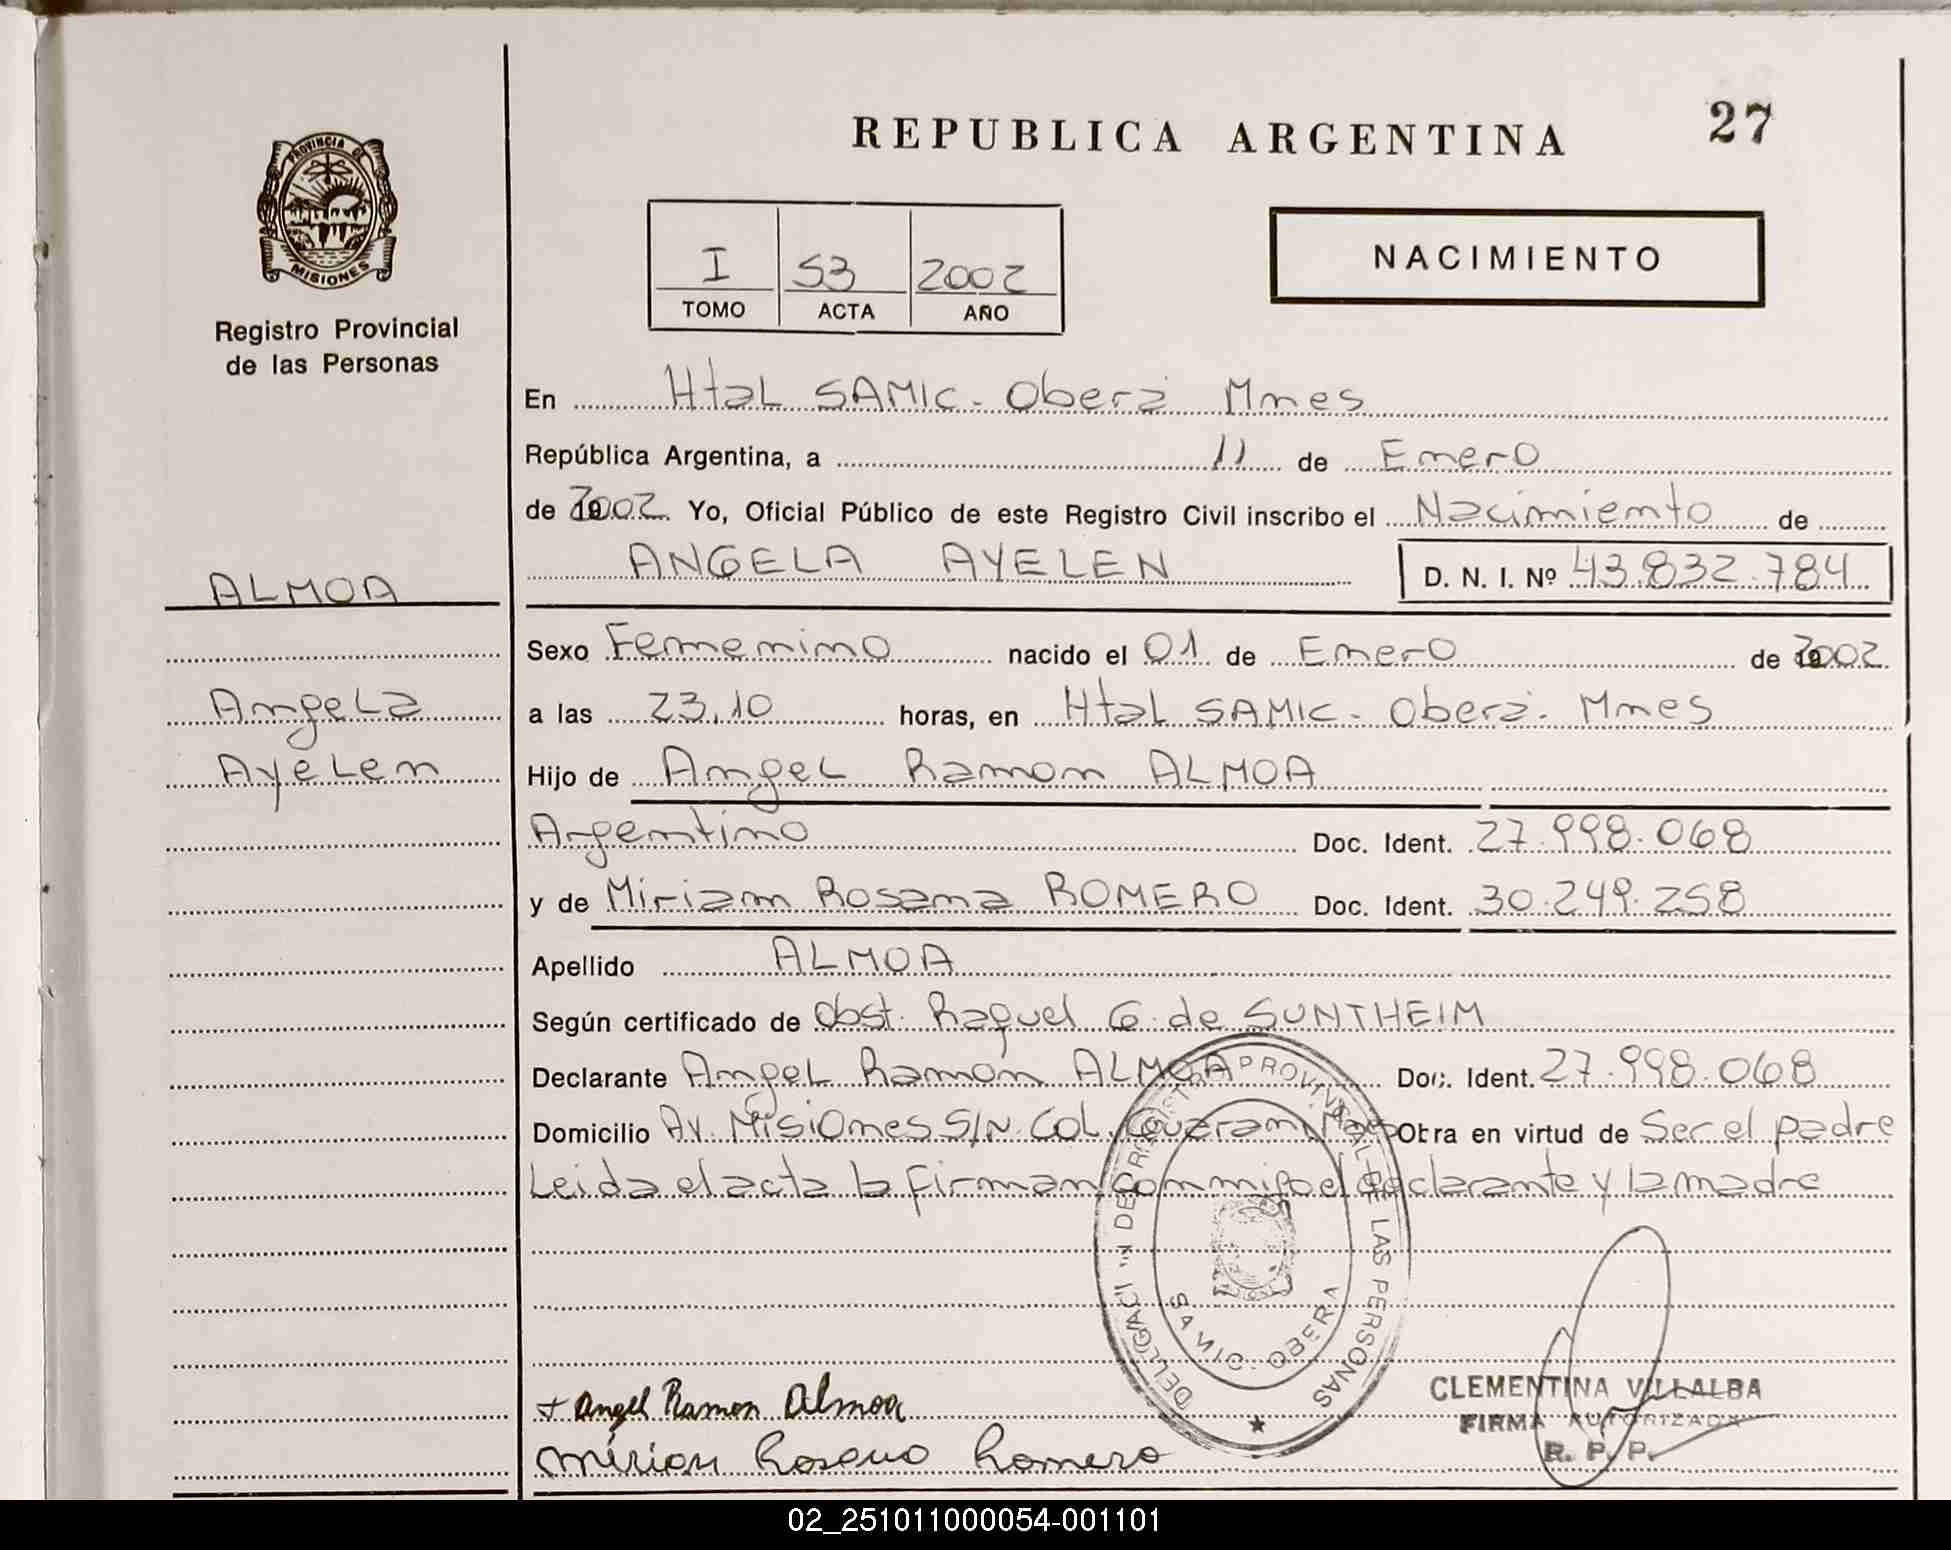 REPUBLICA ARGENTINA 27
PROVINCIA DE
MISIONES
Registro Provincial
de las Personas
I 53 2002
TOMO ACTA AÑO
NACIMIENTO
En Htal SAMIC - Oberá Mnes
República Argentina, a 11 de Enero
de 2002 Yo, Oficial Público de este Registro Civil inscribo el Nacimiento de
ANGELA AYELEN D. N. I. Nº 43.832.784
ALMOA
Sexo Femenino nacido el 01 de Enero de 2002
Angela
a las 23,10 horas, en Htal SAMIC - Oberá - Mnes
Ayelen
Hijo de Angel Ramon ALMOA
Argentino Doc. Ident. 27.998.068
y de Miriam Rosana ROMERO Doc. Ident. 30.249.258
Apellido ALMOA
Según certificado de Obst. Raquel G. de SUNTHEIM
Declarante Angel Ramón ALMOA Doc. Ident. 27.998.068
Domicilio Av. Misiones S/N. Col. Guaraní Mnes Obra en virtud de Ser el padre
Leida el acta la firman conmigo el declarante y la madre
DELEGACI DE REGISTRO PROVINCIAL DE LAS PERSONAS
SAMIC - OBERA
+ Angel Ramon Almoa
CLEMENTINA VILLALBA
FIRMA AUTORIZADA
R. P. P.
Mirian Rosana Romero
02_251011000054-001101